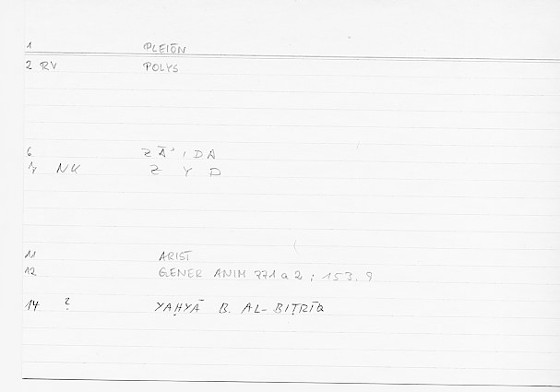 1 PLEIŌN
2 RV POLYS
6 ZĀʾIDA
7 NK Z Y D
11 ARIST
12 GENER ANIM 771 a 2 ; 153.9
14 ? YAḤYĀ B. AL-BIṬRĪQ